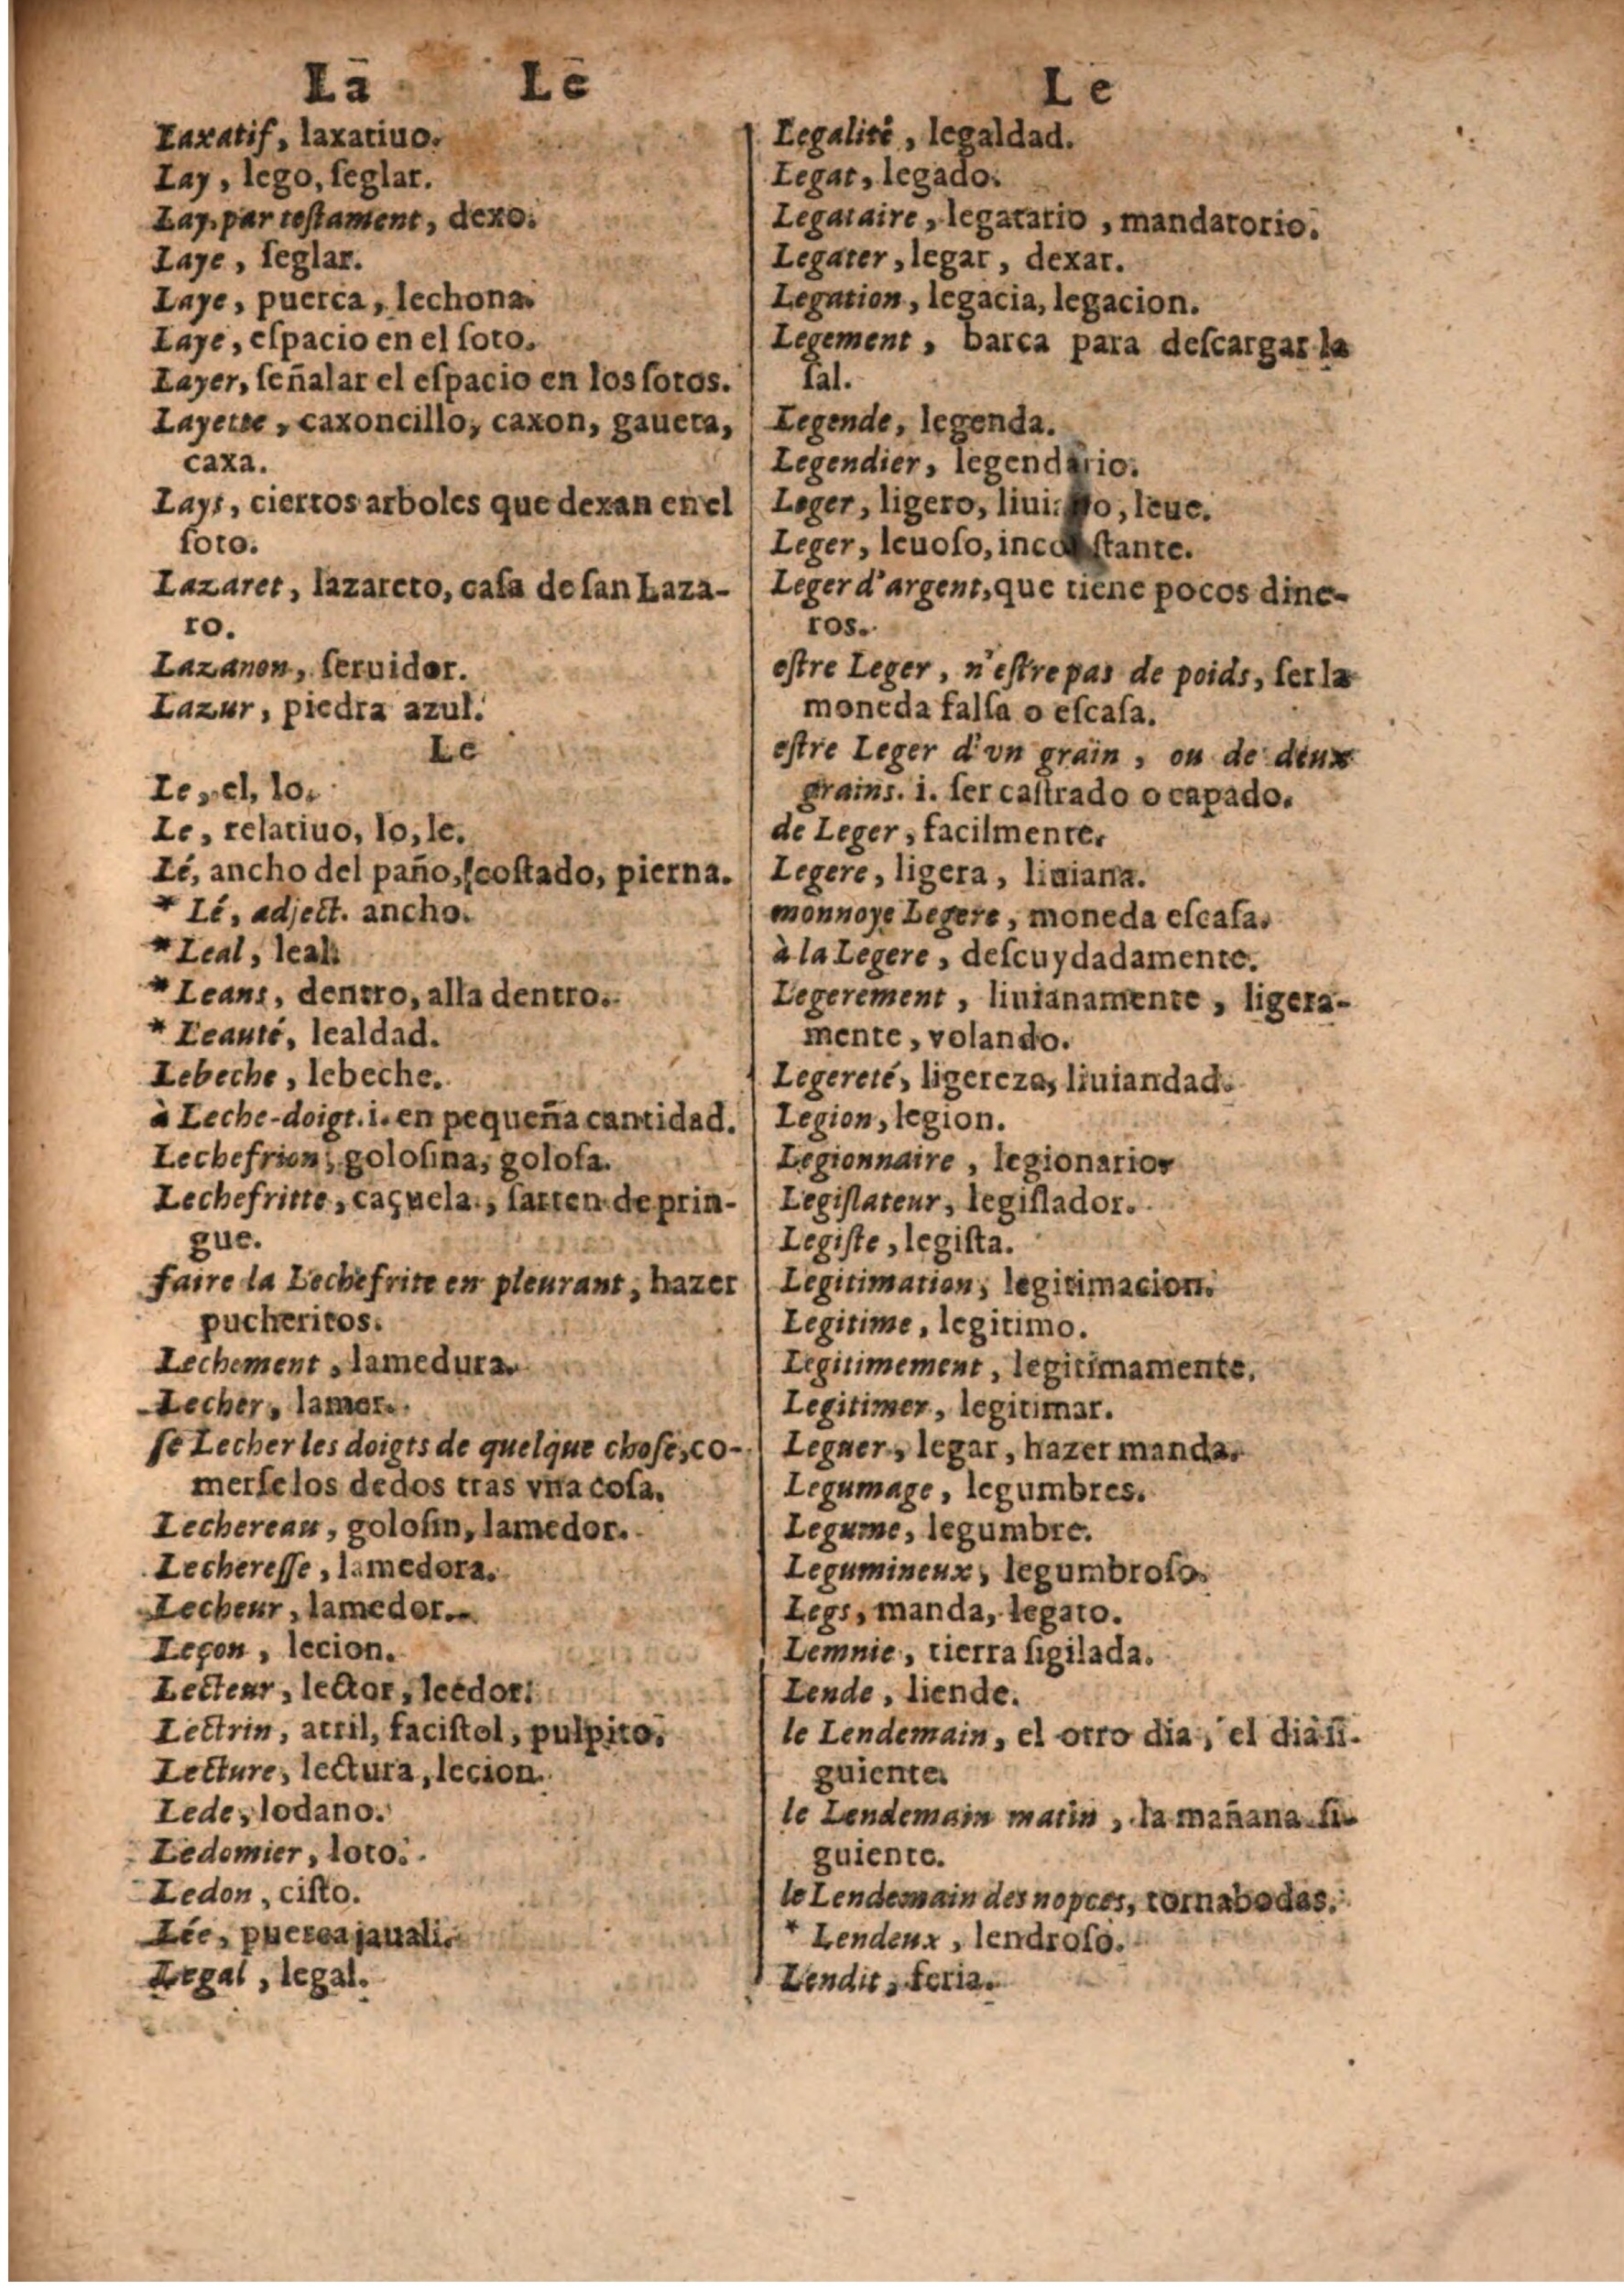 La Le
Laxatif, laxatiuo.
Lay, lego, ſeglar.
Lay, par teſtament, dexo.
Laye, ſeglar.
Laye, puerca, lechona.
Laye, eſpacio en el ſoto.
Layer, ſeñalar el eſpacio en los ſotos.
Layette, caxoncillo, caxon, gaueta,
caxa.
Lays, ciertos arboles que dexan en el
ſoto.
Lazaret, lazareto, caſa de ſan Laza-
ro.
Lazanon, ſeruidor.
Lazur, piedra azul.
Le
Le, el, lo.
Le, relatiuo, lo, le.
Lé, ancho del paño, coſtado, pierna.
* Lé, adject. ancho.
* Leal, leal.
* Leans, dentro, alla dentro.
* Leauté, lealdad.
Lebeche, lebeche.
à Leche-doigt. i. en pequeña cantidad.
Lechefrion, goloſina, goloſa.
Lechefritte, caçuela, ſarten de prin-
gue.
faire la Lechefrite en pleurant, hazer
pucheritos.
Lechement, lamedura.
Lecher, lamer.
ſe Lecher les doigts de quelque choſe, co-
merſe los dedos tras vna coſa.
Lechereau, goloſin, lamedor.
Lechereſſe, lamedora.
Lecheur, lamedor.
Leçon, lecion.
Lecteur, lector, leedor.
Lectrin, atril, faciſtol, pulpito.
Lecture, lectura, lecion.
Lede, lodano.
Ledomier, loto.
Ledon, ciſto.
Lée, puerca jauali.
Legal, legal.
Le
Legalité, legaldad.
Legat, legado.
Legataire, legatario, mandatorio.
Legater, legar, dexar.
Legation, legacia, legacion.
Legement, barca para deſcargar la
ſal.
Legende, legenda.
Legendier, legendario.
Leger, ligero, liuiano, leue.
Leger, leuoſo, inconſtante.
Leger d'argent, que tiene pocos dine-
ros.
eſtre Leger, n'eſtre pas de poids, ſer la
moneda falſa o eſcaſa.
eſtre Leger d'vn grain, ou de deux
grains. i. ſer caſtrado o capado.
de Leger, facilmente.
Legere, ligera, liuiana.
monnoye Legere, moneda eſcaſa.
à la Legere, deſcuydadamente.
Legerement, liuianamente, ligera-
mente, volando.
Legereté, ligereza, liuiandad.
Legion, legion.
Legionnaire, legionario.
Legiſlateur, legiſlador.
Legiſte, legiſta.
Legitimation, legitimacion.
Legitime, legitimo.
Legitimement, legitimamente.
Legitimer, legitimar.
Leguer, legar, hazer manda.
Legumage, legumbres.
Legume, legumbre.
Legumineux, legumbroſo.
Legs, manda, legato.
Lemnie, tierra ſigilada.
Lende, liende.
le Lendemain, el otro dia, el dia ſi-
guiente.
le Lendemain matin, la mañana ſi-
guiente.
le Lendemain des nopces, tornabodas.
* Lendeux, lendroſo.
Lendit, feria.